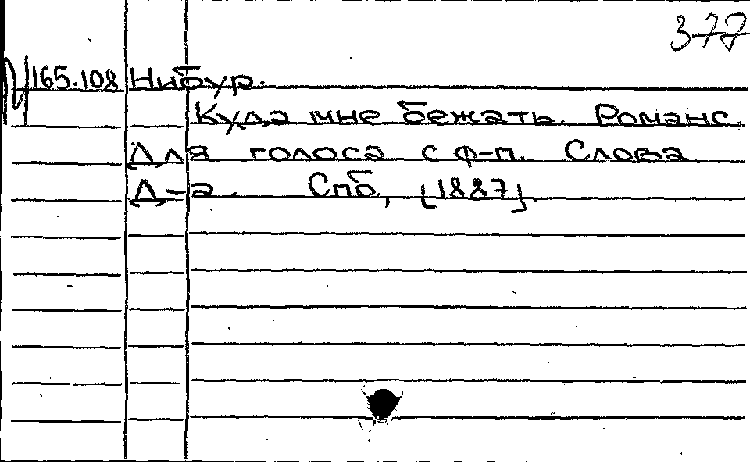 377
165.108 Нибур.
Куда мне бежать. Романс
для голоса с ф-п. Слова
Д-а. Спб, [1887].